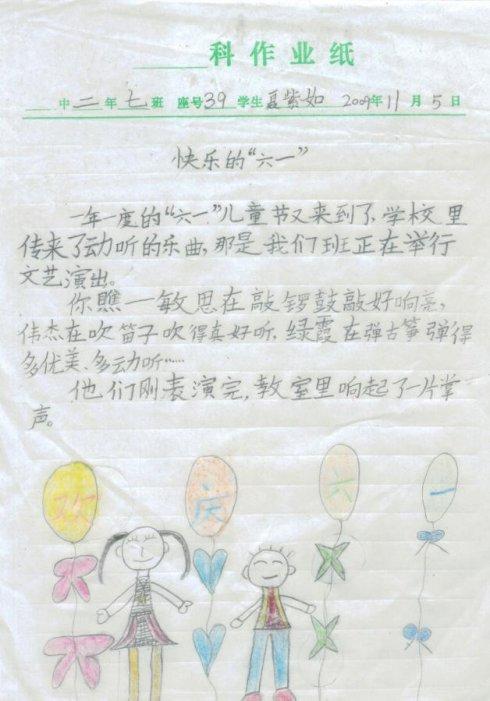 科作业纸
中二年七班 座号39 学生夏紫如 2009年11月5日
快乐的“六一”
一年一度的“六一”儿童节又来到了,学校里
传来了动听的乐曲,那是我们班正在举行
文艺演出。
你瞧一敏思在敲锣鼓敲好响亮,
伟杰在吹笛子吹得真好听,绿霞在弹古筝弹得
多优美、多动听……
他们刚表演完,教室里响起了一片掌
声。
欢 庆 六 一